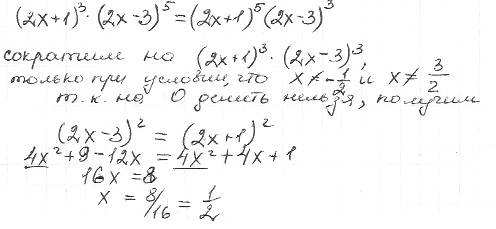 (2x+1)³ · (2x-3)⁵ = (2x+1)⁵ (2x-3)³
сократим на (2x+1)³ · (2x-3)³,
только при условии, что x ≠ -1/2 и x ≠ 3/2
т.к. на 0 делить нельзя, получим
(2x-3)² = (2x+1)²
4x² + 9 - 12x = 4x² + 4x + 1
16x = 8
x = 8/16 = 1/2